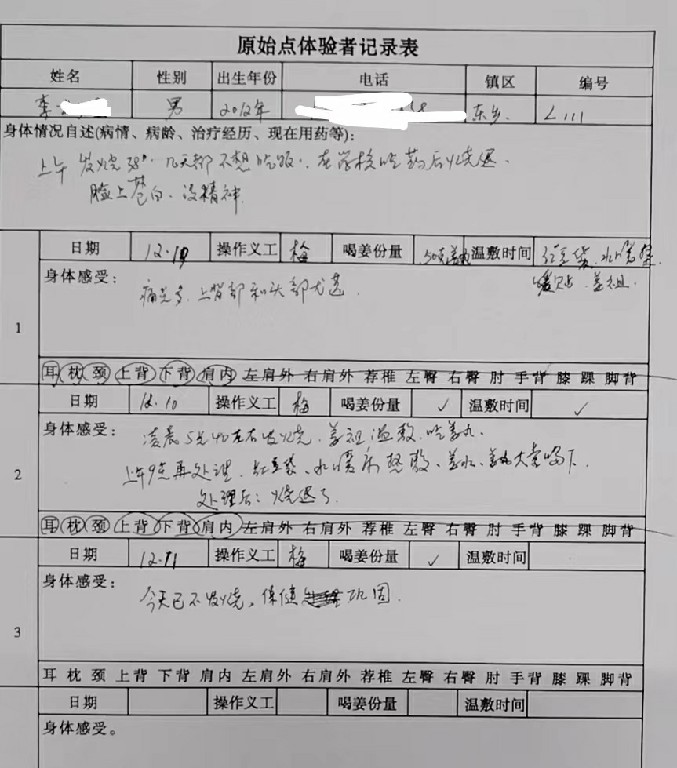 原始点体验者记录表
姓名 性别 出生年份 电话 镇区 编号
李 男 2012年 东乡 L111
身体情况自述(病情、病龄、治疗经历、现在用药等):
上午发烧38°.几天都不想吃饭.在学校吃药后烧退.
脸上苍白、没精神
日期 12.10 操作义工 梅 喝姜份量 温敷时间 红豆袋、水暖
身体感受:
1
痛点多,上背部和头部尤甚
耳 枕 颈 上背 下背 肩内 左肩外 右肩外 荐椎 左臀 右臀 肘 手背 膝 踝 脚背
日期 12.10 操作义工 梅 喝姜份量 ✓ 温敷时间 ✓
身体感受:
2
凌晨5点40左右发烧.姜袓温敷.吃姜丸.
上午9点再处理.红豆袋、水暖 热敷、姜水、姜丸大量喝下
处理后:烧退了
耳 枕 颈 上背 下背 肩内 左肩外 右肩外 荐椎 左臀 右臀 肘 手背 膝 踝 脚背
日期 12.11 操作义工 梅 喝姜份量 ✓ 温敷时间
身体感受:
3
今天已不发烧,保健 巩固.
耳 枕 颈 上背 下背 肩内 左肩外 右肩外 荐椎 左臀 右臀 肘 手背 膝 踝 脚背
日期 操作义工 喝姜份量 温敷时间
身体感受。